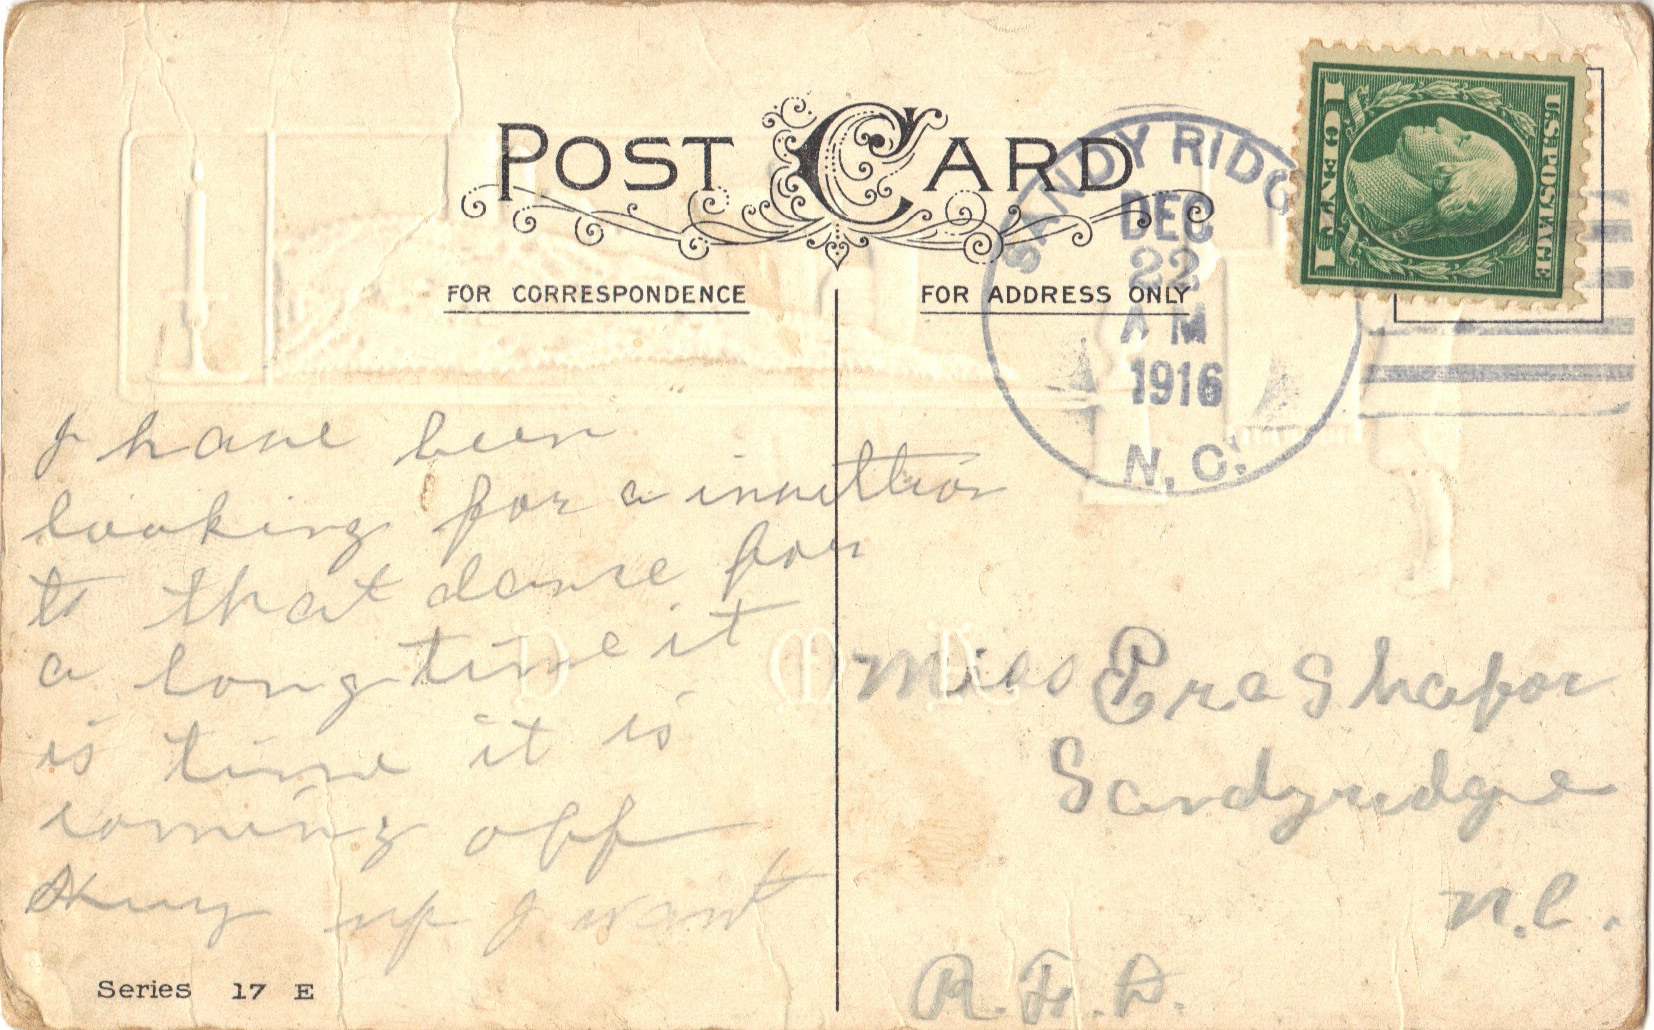 POST CARD
FOR CORRESPONDENCE
FOR ADDRESS ONLY
SANDY RIDG
DEC
22
A M
1916
N. C.
U.S. POSTAGE
1 CENT 1
I have been
looking for a invittion
to that dance for
a long time it
is time it is
coming off
Hury up I want
Miss Era Shafor
Sandyridge
N.C.
R.F.D.
Series 17 E